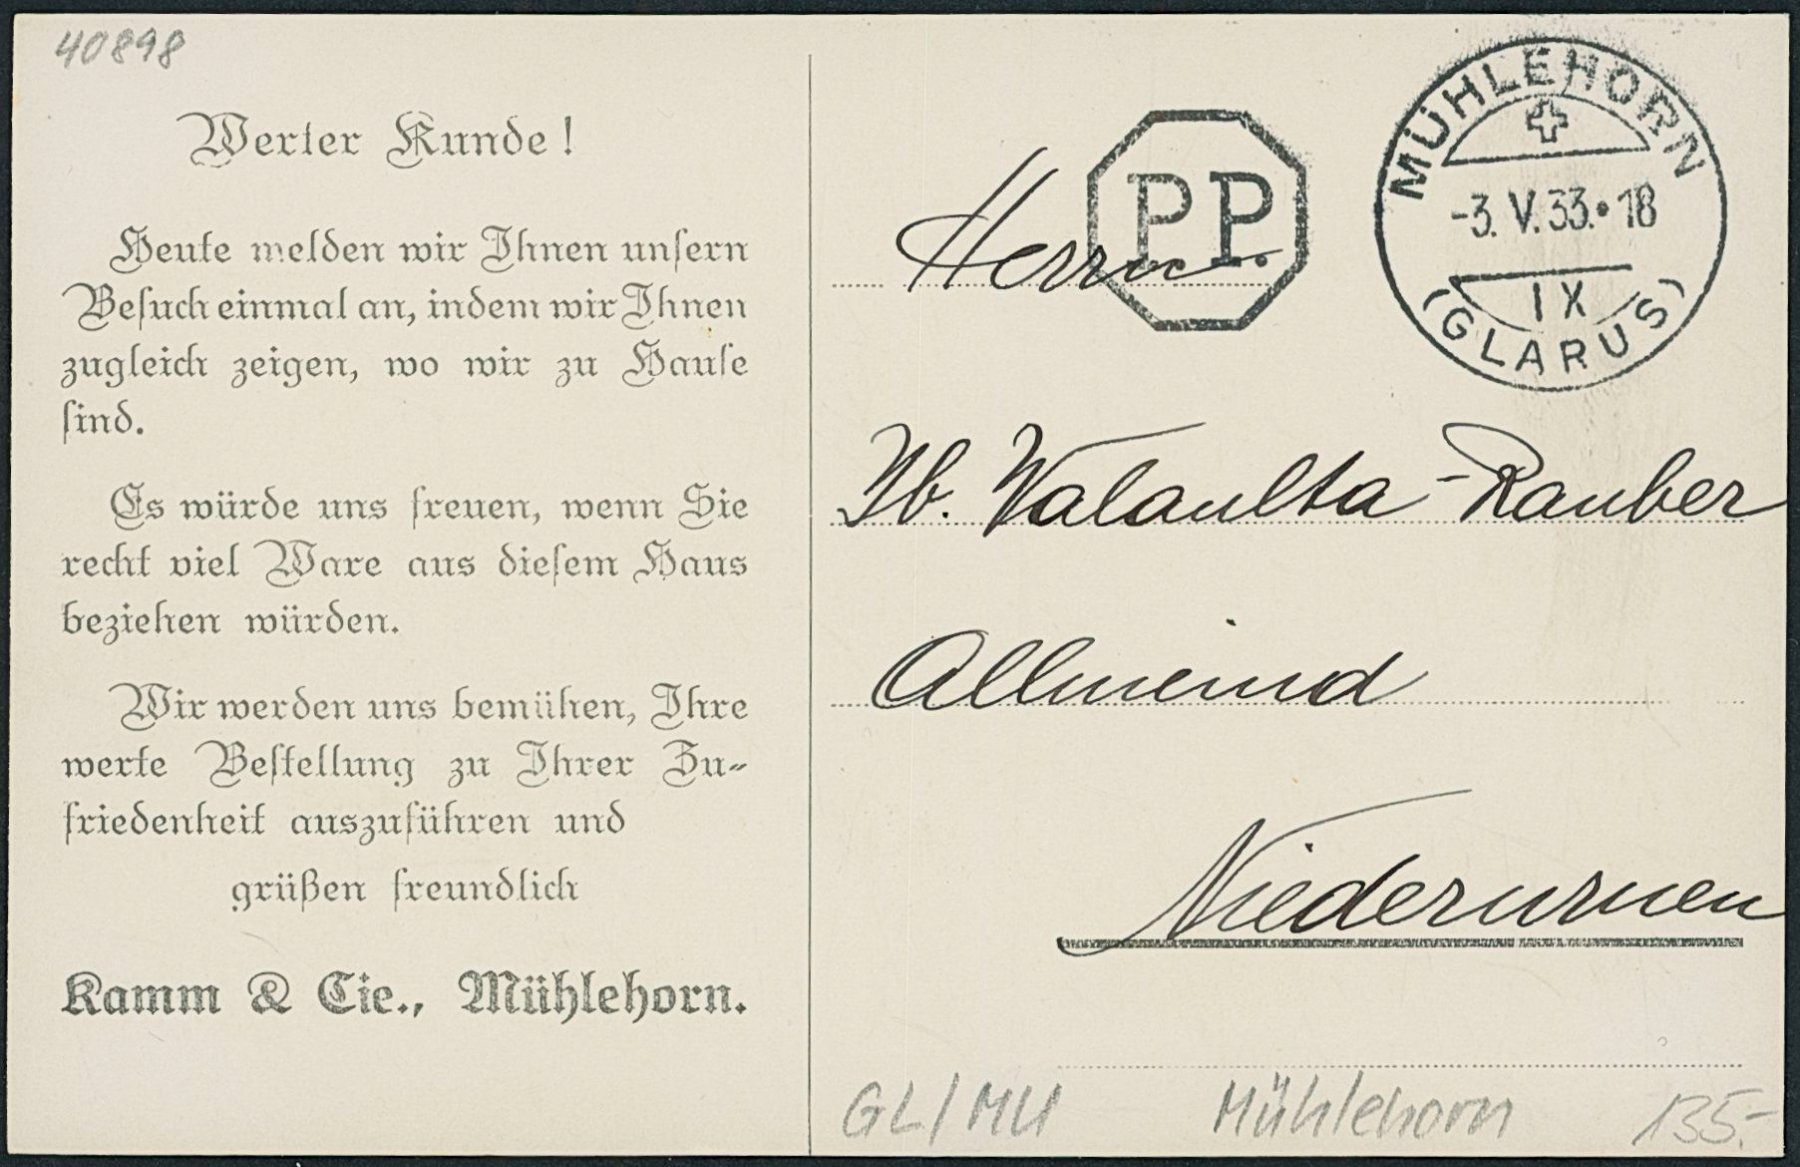 40898
Werter Kunde!
Heute melden wir Ihnen unsern
Besuch einmal an, indem wir Ihnen
zugleich zeigen, wo wir zu Hause
sind.
Es würde uns freuen, wenn Sie
recht viel Ware aus diesem Haus
beziehen würden.
Wir werden uns bemühen, Ihre
werte Bestellung zu Ihrer Zu-
friedenheit auszuführen und
grüßen freundlich
Kamm & Cie., Mühlehorn.
P.P.
MÜHLEHORN
-3.V.33.•18
IX
(GLARUS)
Herrn
Jb. Walaulta-Rauber
Allmeind
Niederurnen
GL/MU Mühlehorn 135.-